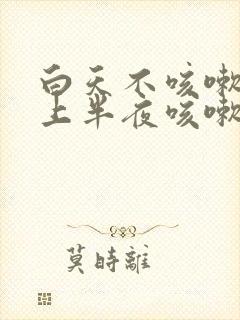 白天不咳嗽
上半夜咳嗽
莫時離